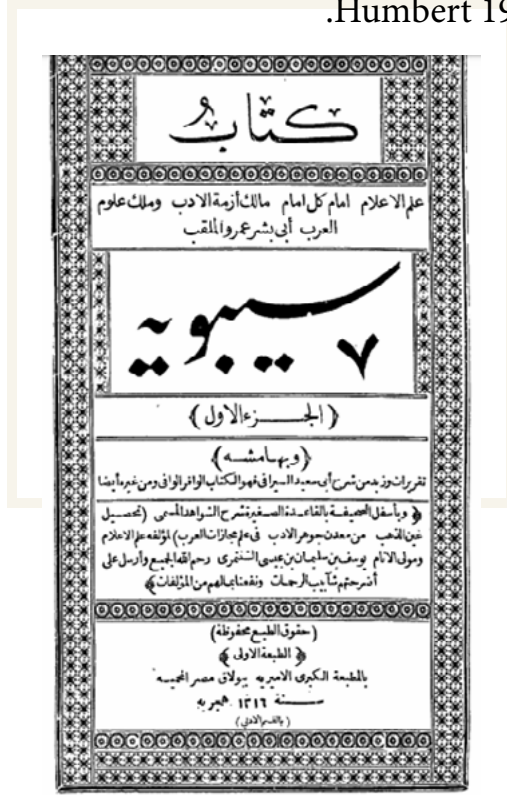 .Humbert 19
كتاب
علم الاعلام امام كل امام مالك أزمة الادب وملك علوم
العرب أبي بشر عمرو الملقب
سيبويه
﴿ الجـــزء الاول ﴾
﴿ وبهامشه ﴾
تقريرات وزبد من شرح أبي سعيد السيرافي فهو الكتاب الوافر الوافي ومن غيره أيضا
﴿ وبأسفل الصحيفة بالقاعدة الصغيرة شرح الشواهد المسمى (تحصيل
عين الذهب من معدن جوهر الادب في علم مجازات العرب) لمؤلفه علم الاعلام
ومولى الانام يوسف بن سليمان بن عيسى الشنتمرى رحم الله الجميع وأرسل على
أضرحتهم شآبيب الرحمات ونفعنا بمالهم من المؤلفات ﴾
(حقوق الطبع محفوظة)
﴿ الطبعة الاولى ﴾
بالمطبعة الكبرى الاميريه ببولاق مصر المحميه
ســـنة ١٣١٦ هجريه
(بالقسم الادبي)